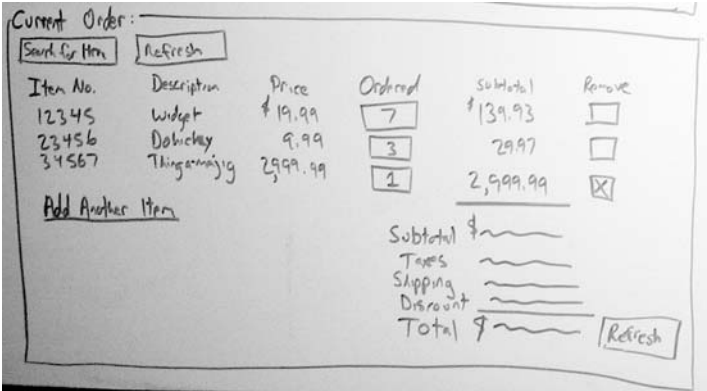 Current Order:
Search for Item Refresh
Item No. Description Price Ordered Subtotal Remove
12345 Widget $19.99 7 $139.93
23456 Dohickey 9.99 3 29.97
34567 Thingamajig 2,999.99 1 2,999.99 X
Add Another Item
Subtotal $
Taxes
Shipping
Discount
Total $ Refresh